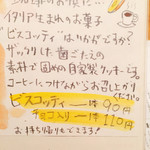 イタリア生まれのお菓子
"ビスコッティ"はいかがですか?
ザックリした歯ごたえの
素朴で固めの自家製クッキーです。
コーヒーにつけながらお召し上がり
ください。
ビスコッティ 一本 90円
チョコ入り 一本 110円
お持ち帰りもできます!